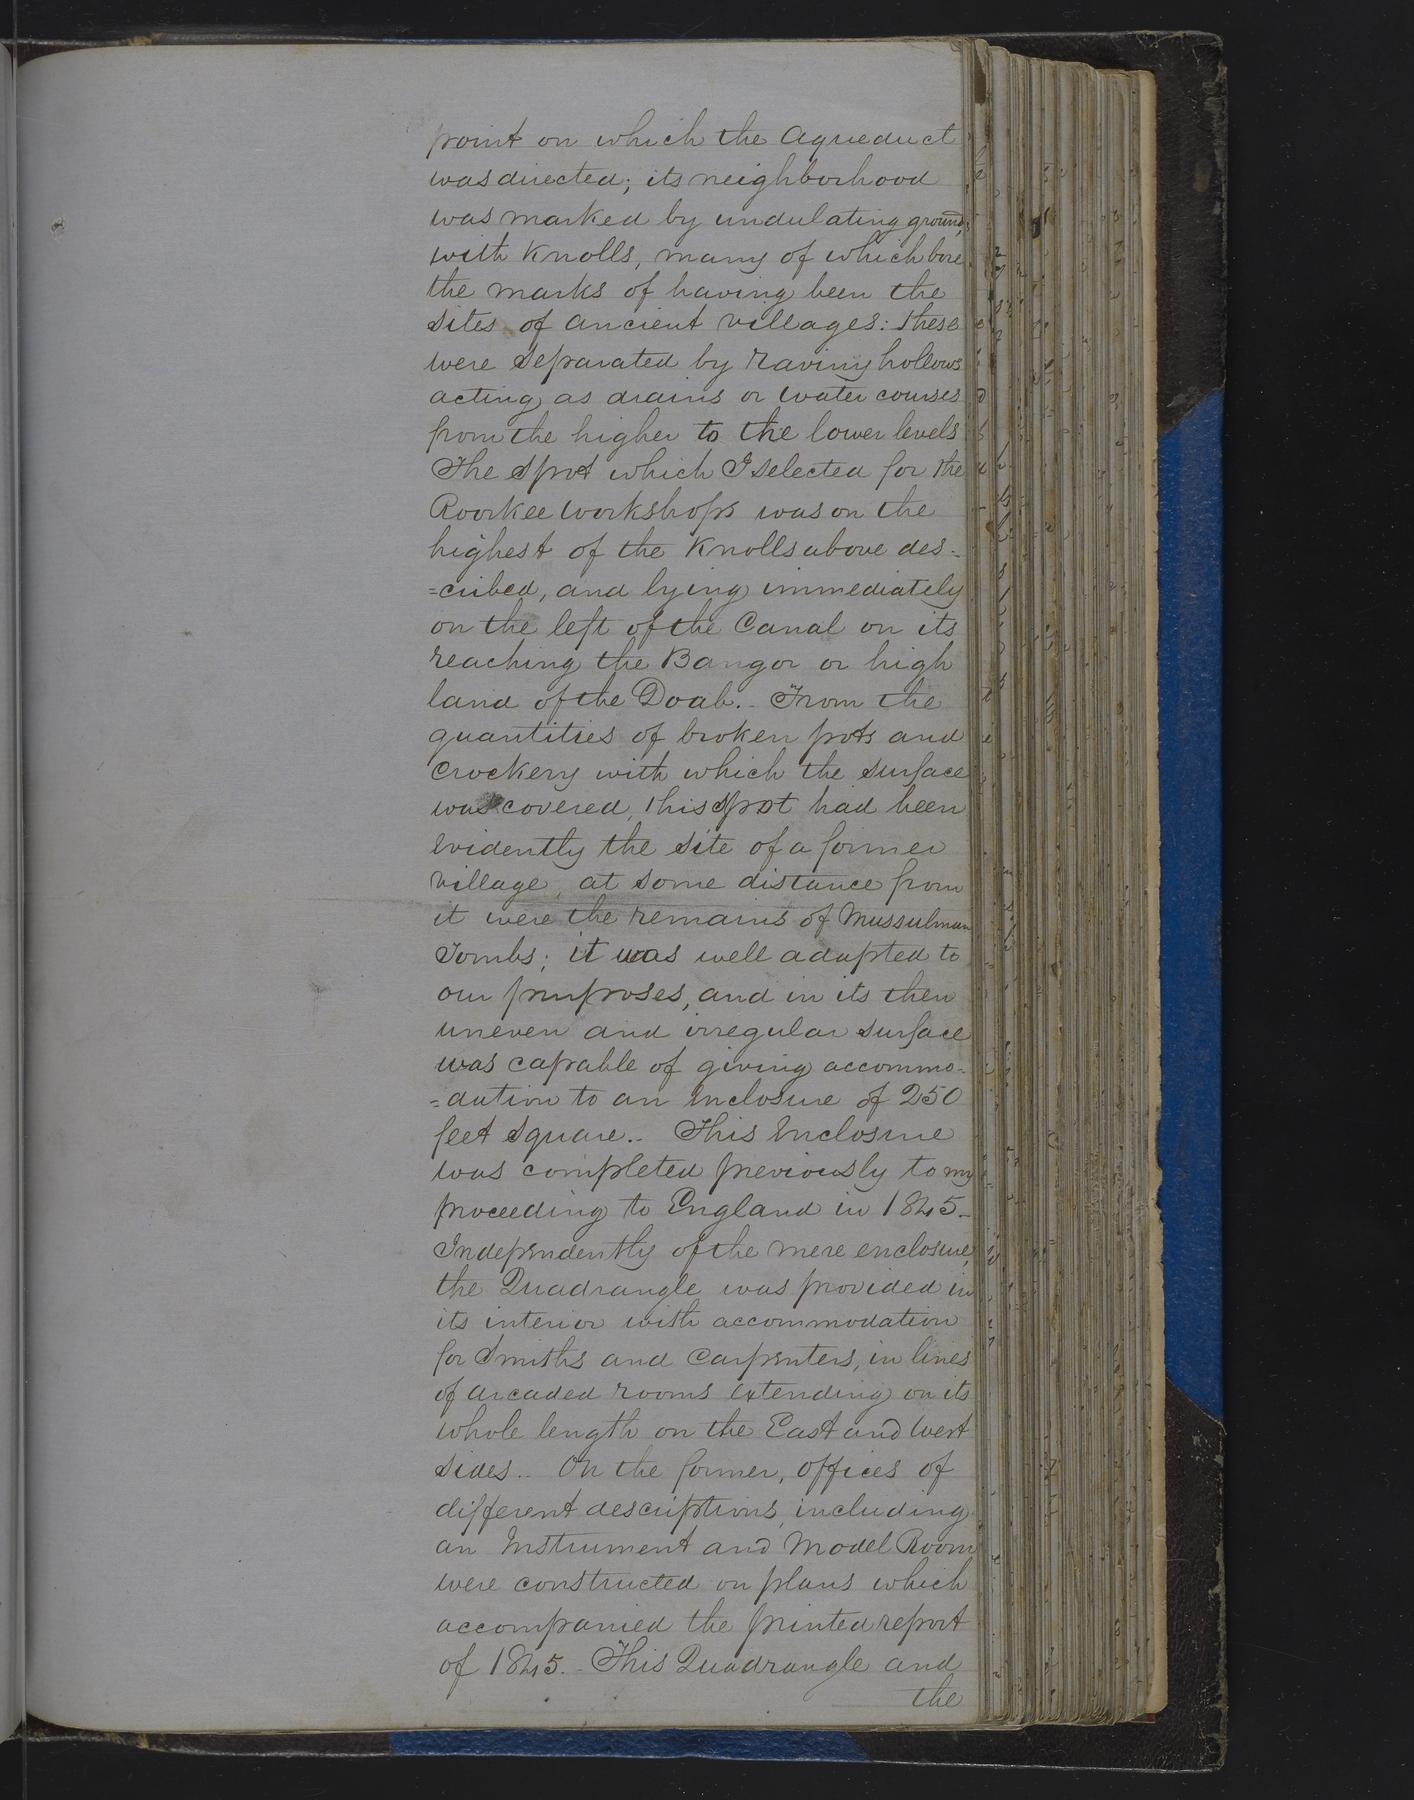 point on which the Aqueduct
was directed; its neighborhood
was marked by undulating ground,
with Knolls, many of which bore
the marks of having been the
sites of ancient villages: these
were separated by raviny hollows
acting as drains or water courses
from the higher to the lower levels
The spot which I selected for the
Roorkee workshops was on the
highest of the Knolls above des-
=cribed, and lying immediately
on the left of the Canal on its
reaching the Bangor or high
land of the Doab.. From the
quantities of broken pots and
crockery with which the surface
was covered, this spot had been
evidently the site of a former
village, at some distance from
it were the remains of Mussulman
Tombs; it was well adapted to
our purposes, and in its then
uneven and irregular surface
was capable of giving accommo-
=dation to an enclosure of 250
feet square.. This enclosure
was completed previously to my
proceeding to England in 1845-
Independently of the mere enclosure,
the Quadrangle was provided in
its interior with accommodation
for Smiths and Carpenters, in lines
of arcaded rooms extending on its
whole length on the East and West
sides.. On the former, offices of
different descriptions, including
an Instrument and Model Room
were constructed on plans which
accompanied the printed report
of 1845.. This Quadrangle and
the